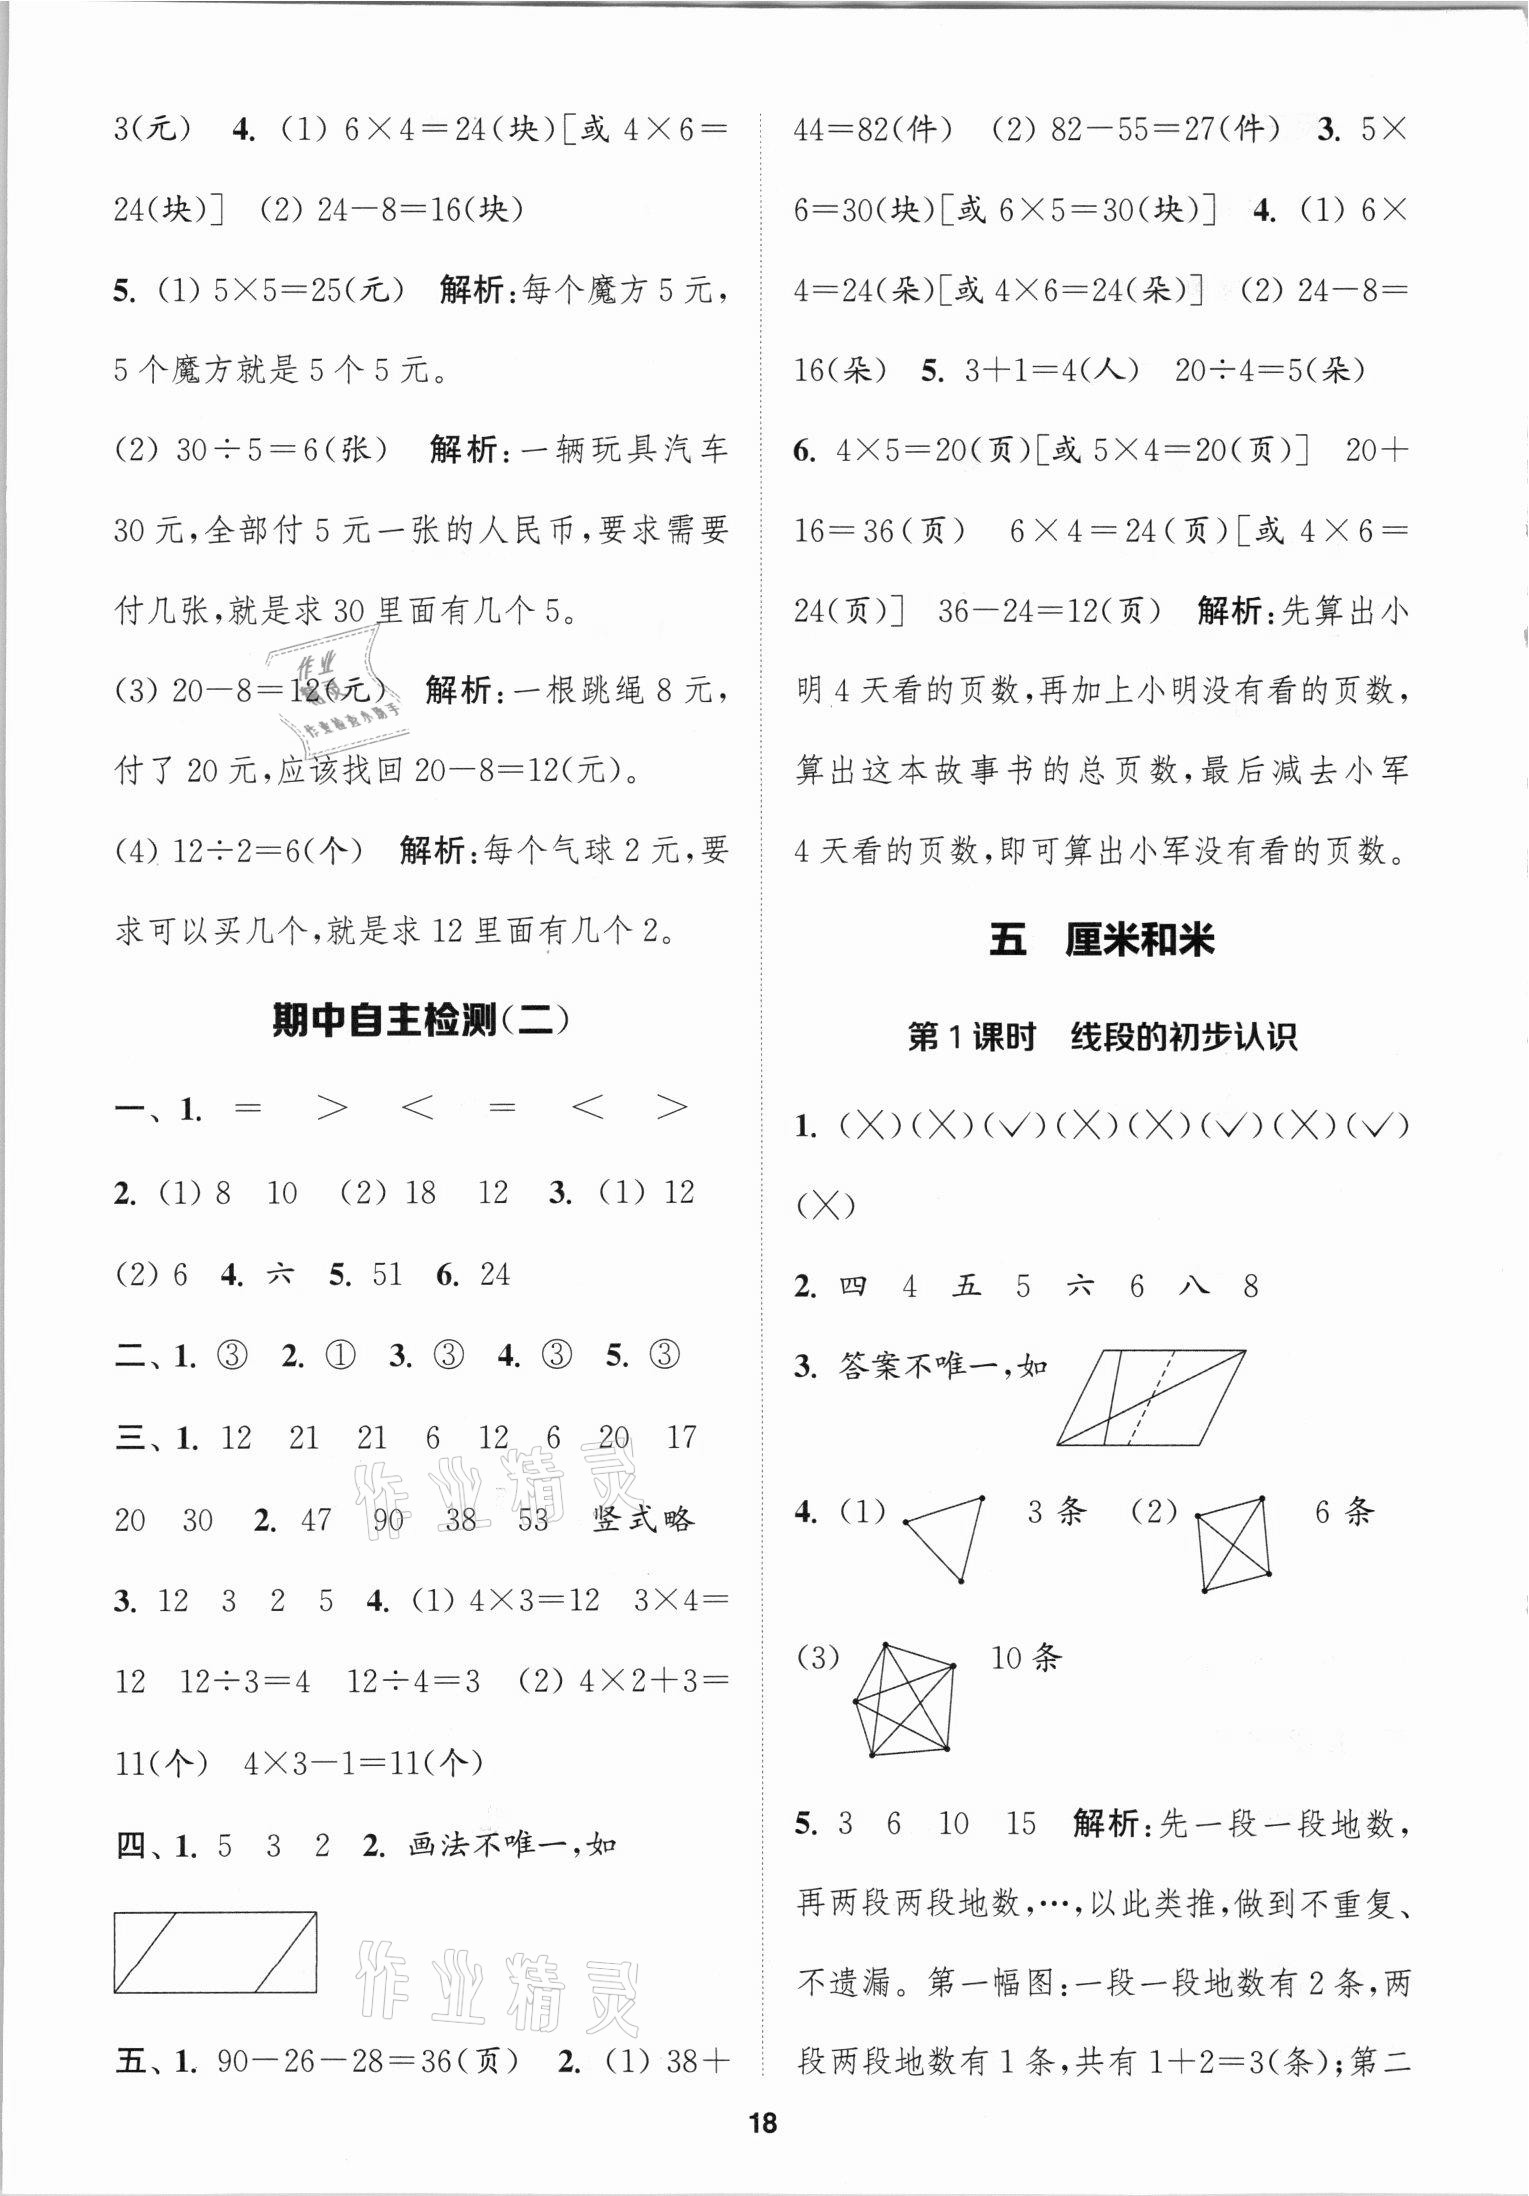 3(元)　4. (1) 6×4=24(块)[或 4×6=
24(块)]　(2) 24-8=16(块)
5. (1) 5×5=25(元)　解析:每个魔方 5 元,
5 个魔方就是 5 个 5 元。
(2) 30÷5=6(张)　解析:一辆玩具汽车
30 元,全部付 5 元一张的人民币,要求需要
付几张,就是求 30 里面有几个 5。
(3) 20-8=12(元)　解析:一根跳绳 8 元,
付了 20 元,应该找回 20-8=12(元)。
(4) 12÷2=6(个)　解析:每个气球 2 元,要
求可以买几个,就是求 12 里面有几个 2。
期中自主检测(二)
一、1. =　>　<　=　<　>
2. (1) 8　10　(2) 18　12　3. (1) 12
(2) 6　4. 六　5. 51　6. 24
二、1. ③　2. ①　3. ③　4. ③　5. ③
三、1. 12　21　21　6　12　6　20　17
20　30　2. 47　90　38　53　竖式略
3. 12　3　2　5　4. (1) 4×3=12　3×4=
12　12÷3=4　12÷4=3　(2) 4×2+3=
11(个)　4×3-1=11(个)
四、1. 5　3　2　2. 画法不唯一,如
五、1. 90-26-28=36(页)　2. (1) 38+
44=82(件)　(2) 82-55=27(件)　3. 5×
6=30(块)[或 6×5=30(块)]　4. (1) 6×
4=24(朵)[或 4×6=24(朵)]　(2) 24-8=
16(朵)　5. 3+1=4(人)　20÷4=5(朵)
6. 4×5=20(页)[或 5×4=20(页)]　20+
16=36(页)　6×4=24(页)[或 4×6=
24(页)]　36-24=12(页)　解析:先算出小
明 4 天看的页数,再加上小明没有看的页数,
算出这本故事书的总页数,最后减去小军
4 天看的页数,即可算出小军没有看的页数。
五　厘米和米
第 1 课时　线段的初步认识
1. (╳)(╳)(√)(╳)(╳)(√)(╳)(√)
(╳)
2. 四　4　五　5　六　6　八　8
3. 答案不唯一,如
4. (1)　3 条　(2)　6 条
(3)　10 条
5. 3　6　10　15　解析:先一段一段地数,
再两段两段地数,…,以此类推,做到不重复、
不遗漏。第一幅图:一段一段地数有 2 条,两
段两段地数有 1 条,共有 1+2=3(条);第二
18
作业精灵
作业检查小助手
作业精灵
作业精灵